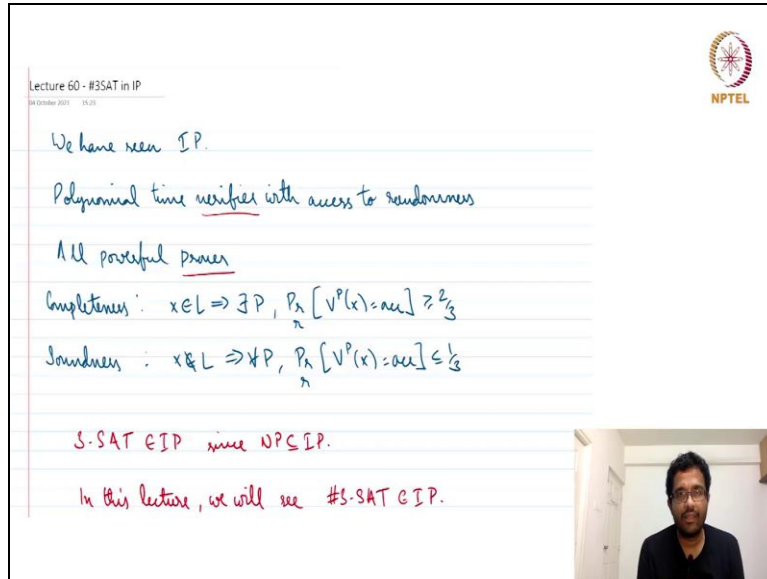 Lecture 60 - #3SAT in IP
04 October 2021 15:25
NPTEL
We have seen IP.
Polynomial time verifier with access to randomness
All powerful prover
Completeness : x∈L ⇒ ∃P, Pr_r [V^P(x)=acc] ≥ 2/3
Soundness : x∉L ⇒ ∀P, Pr_r [V^P(x)=acc] ≤ 1/3
3-SAT ∈ IP since NP ⊆ IP.
In this lecture, we will see #3-SAT ∈ IP.